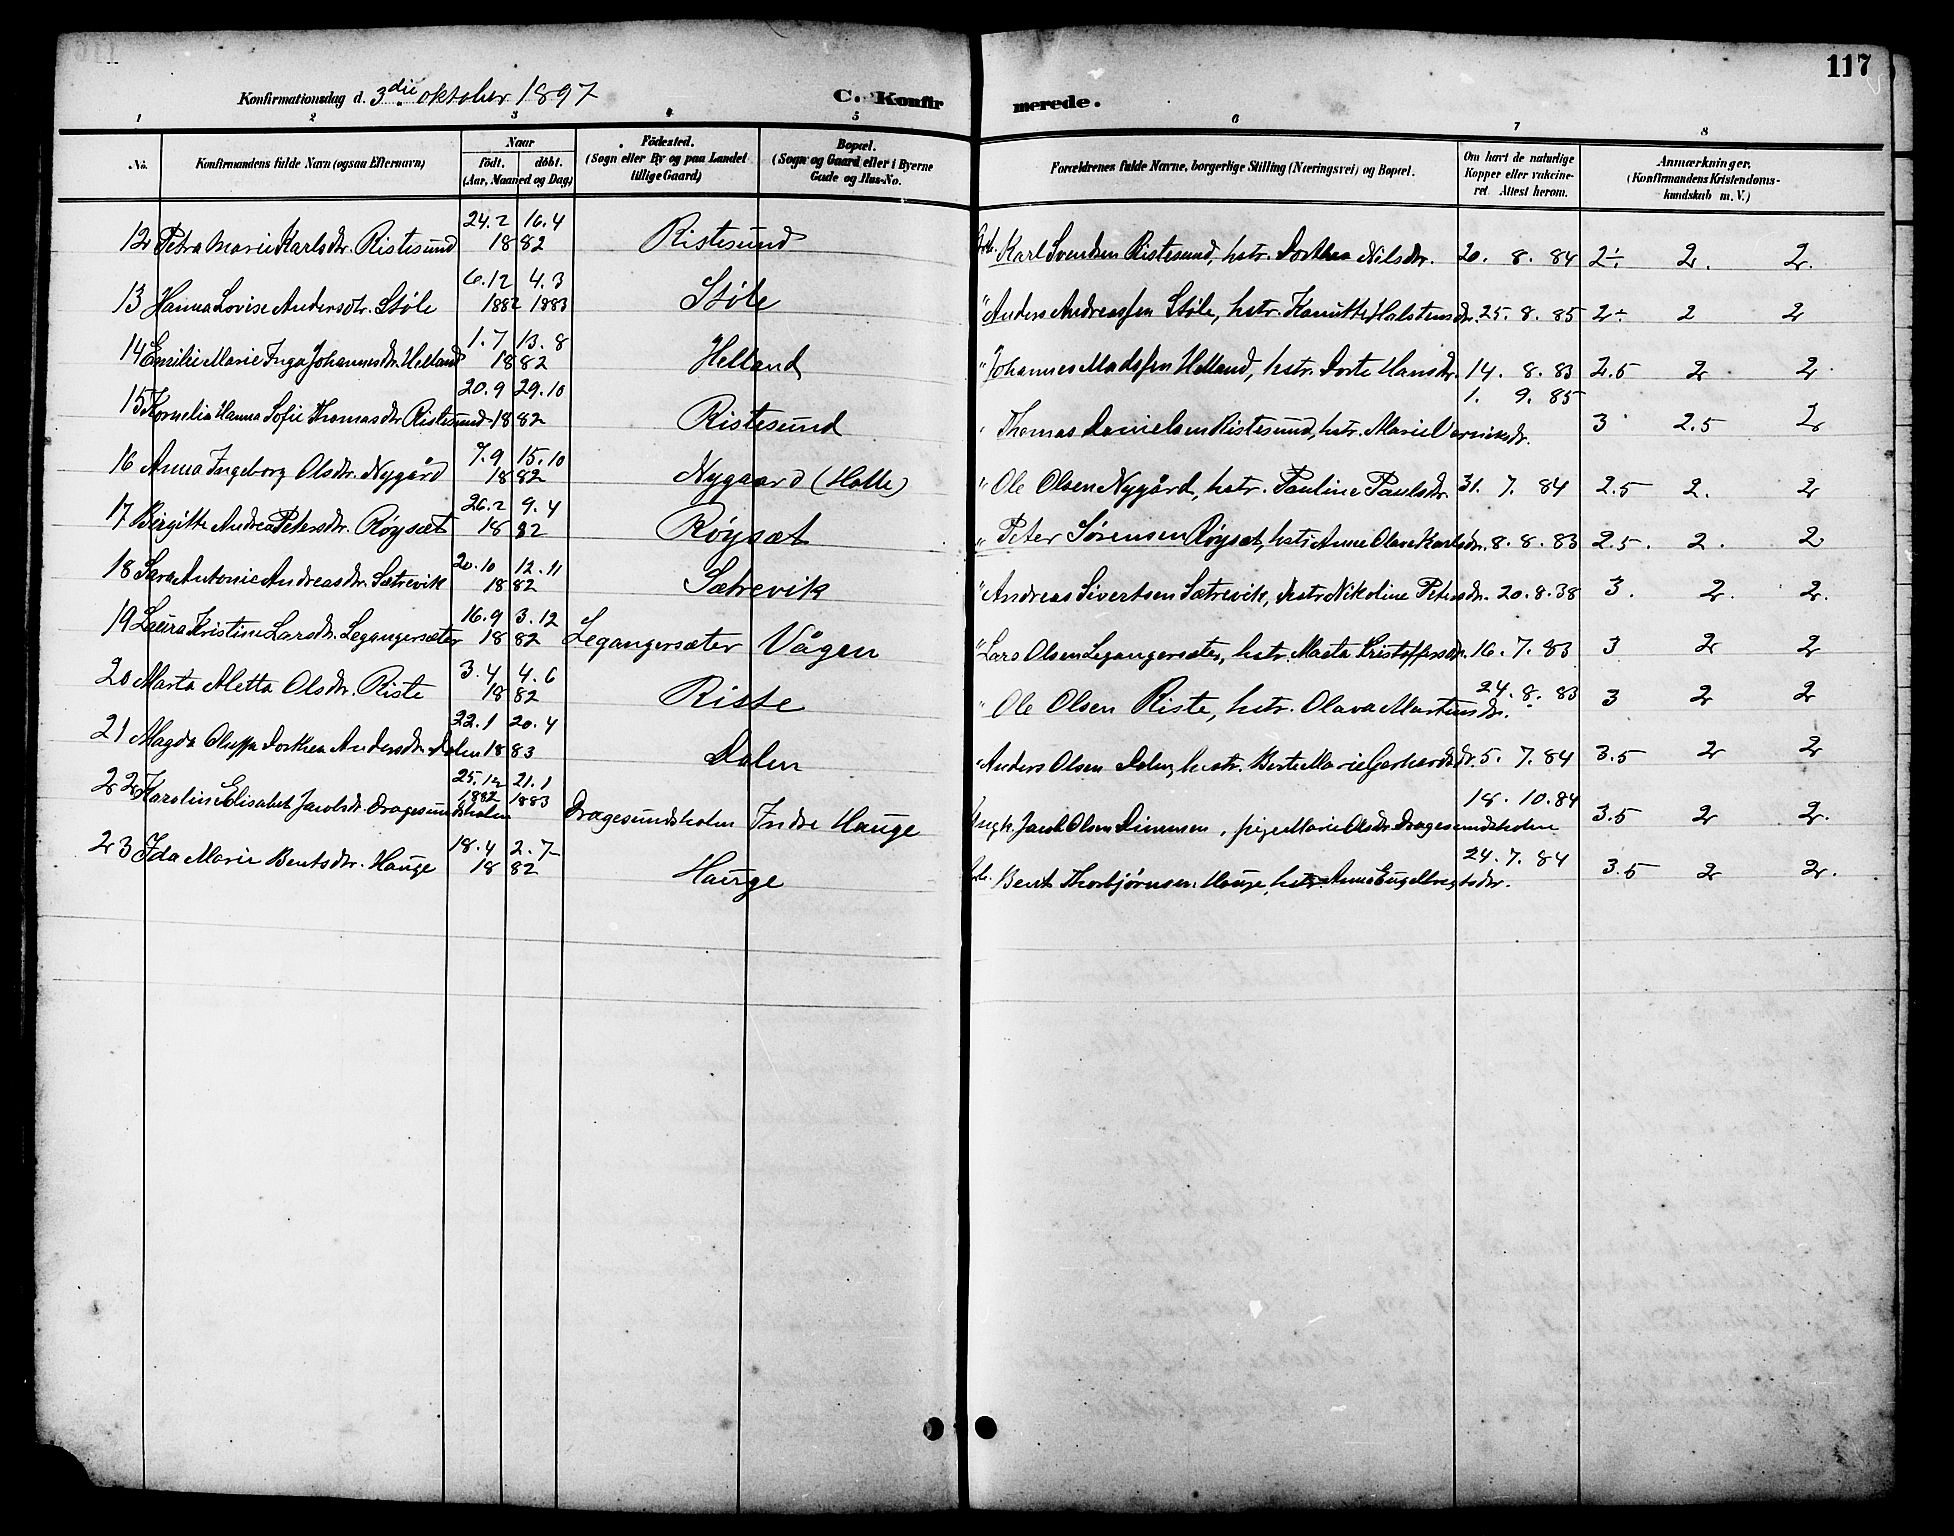 117
Konfirmationsdag d. 3die oktober 1897 C. Konfirmerede.
1 2 3 4 5 6 7 8
No. Konfirmandens fulde Navn (ogsaa Efternavn) Naar födt. döbt. (Aar, Maaned og Dag.) Födested. (Sogn eller By og paa Landet tillige Gaard) Bopæl. (Sogn og Gaard eller i Byerne Gade og Hus-No. Forældrenes fulde Navne, borgerlige Stilling (Næringsvei) og Bopæl. Om havt de naturlige Kopper eller vakcineret. Attest herom. Anmærkninger. (Konfirmandens Kristendomskundskab m. V.)
12 Petra Marie Karlsdtr. Ristesund 24.2 16.4 1882 Ristesund Karl Svendsen Ristesund, hstr. Dorthea Nilsdtr. 20. 8. 84 2÷ 2. 2.
13 Hanna Lovise Andersdtr. Støle 6.12 4.3 1882 1883 Støle " Anders Andreassen Støle, hstr. Kanutte Halstensdtr. 25. 8. 85 2÷ 2 2
14 Emilie Marie Inga Johannesdtr. Helland 1.7 13.8 1882 Helland " Johannes Madssen Helland, hstr. Dorte Hansdtr. 14. 8. 83 2.5 2 2
15 Kornelia Hanna Sofie Thomasdtr. Ristesund 20.9 29.10 1882 Ristesund " Thomas Danielsen Ristesund, hstr. Marie 1. 9. 85 3 2.5 2
16 Anna Ingeborg Olsdtr. Nygård 7.9 15.10 1882 Nygaard (Holle) " Ole Olsen Nygård, hstr. Pauline Paulsdtr. 31. 7. 84 2.5 2. 2
17 Birgitte Andrea Petersdtr. Røysæt 26.2 9.4 1882 Røysæt " Peter Sørensen Røysæt, hstr. Anne Olave Karlsdtr. 8. 8. 83 2.5. 2. 2
18 Sara Antonie Andreasdtr. Sætrevik 20.10 12.11 1882 Sætrevik " Andreas Sivertsen Sætrevik, hstr. Nikoline Petersdtr. 20. 8. 38 3. 2. 2.
19 Laura Kristine Larsdtr. Legangersæter 16.9 3.12 1882 Legangersæter Vågen " Lars Olsen Legangersæter, hstr. Marta Kristoffersdtr. 16. 7. 83 3 2 2
20 Marta Aletta Olsdtr. Riste 3.4 4.6 1882 Riste " Ole Olsen Riste, hstr. Olava Martinsdtr. 24. 8. 83 3 2 2
21 Magda Oluffa Dorthea Andersdtr. Dalen 22.1 20.4 1883 Dalen " Anders Olsen Dalen, hstr. Berte Marie Gerhardsdtr. 5. 7. 84 3.5 2 2
22 Karoline Elisabet Jacobsdtr. Dragesundsholm 25.12 21.1 1882 1883 Dragesundsholm Indre Hauge Ungk. Jacob Olsen Dimnesen, pige Marie Olsdtr. Dragesundsholm 18. 10. 84 3.5 2 2.
23 Ida Marie Bentsdtr. Hauge 18.4 2.7 1882 Hauge Bent Thorbjørnsen Hauge, hstr. Anna Engelbregtsdtr. 24. 7. 84 3.5 2 2.